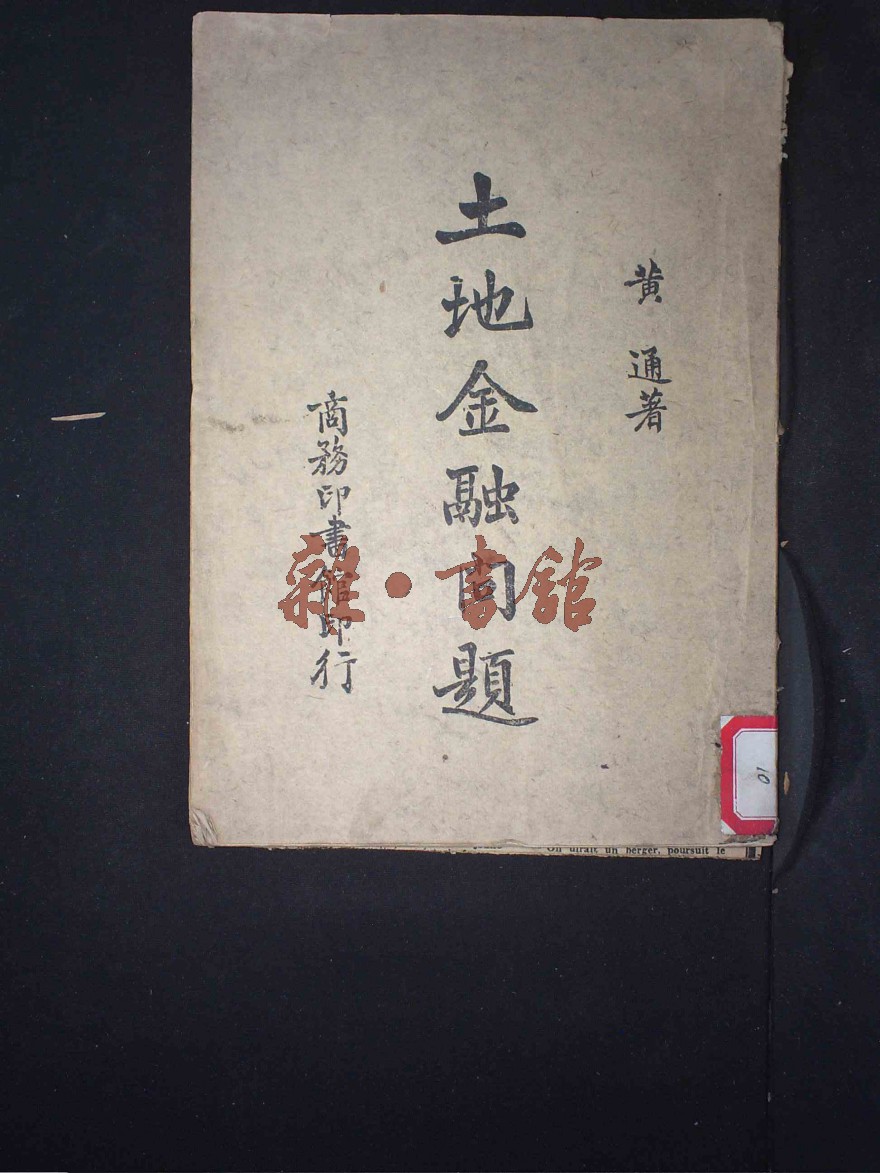 黄通著
土地金融問題
商務印書館印行
雜·書舘
01
On dirait un berger, poursuit le